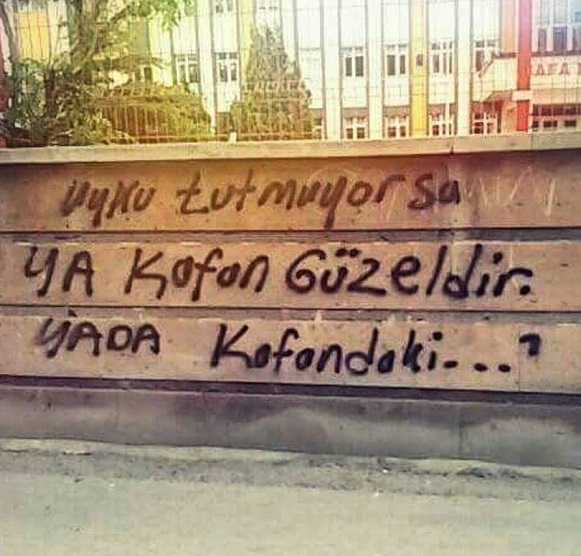 uyku tutmuyorsa
YA Kafan Güzeldir.
YADA Kafandaki....?